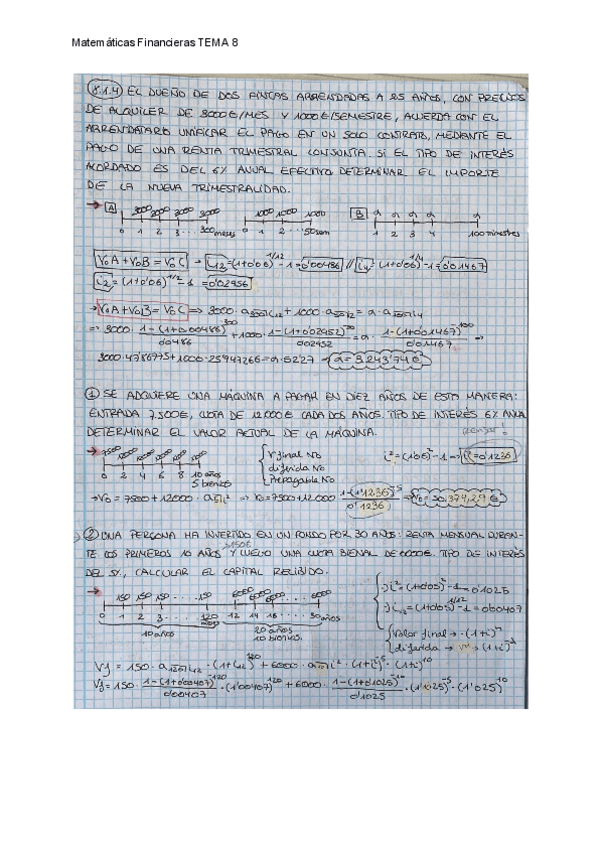 Matemáticas Financieras TEMA 8
8.1.4) EL DUEÑO DE DOS FINCAS ARRENDADAS A 25 AÑOS, CON PRECIOS
DE ALQUILER DE 3000€/MES Y 1000€/SEMESTRE, ACUERDA CON EL
ARRENDATARIO UNIFICAR EL PAGO EN UN SOLO CONTRATO, MEDIANTE EL
PAGO DE UNA RENTA TRIMESTRAL CONJUNTA. SI EL TIPO DE INTERÉS
ACORDADO ES DEL 6% ANUAL EFECTIVO. DETERMINAR EL IMPORTE
DE LA NUEVA TRIMESTRALIDAD.
→ A 3000 3000 3000 3000 1000 1000 1000 B a a a a a
0 1 2 3 ... 300 meses 0 1 2 ... 50 sem 1 2 3 4 100 trimestres
V₀A + V₀B = V₀C → i₁₂ = (1+0'06)^1/12 - 1 = 0'00486 // i₄ = (1+0'06)^1/4 - 1 = 0'01467
i₂ = (1+0'06)^1/2 - 1 = 0'02956
→ V₀A + V₀B = V₀C ⇒ 3000 · a 300 i₁₂ + 1000 · a 50 i₂ = a · a 100 i₄
⇒ 3000 · 1-(1+0'00486)^-300 / 0'0486 + 1000 · 1-(1+0'02952)^-50 / 0'02952 = a · 1-(1+0'01467)^-100 / 0'01467 ⇒
a = 9.243'74€
① SE ADQUIERE UNA MÁQUINA A PAGAR EN DIEZ AÑOS DE ESTA MANERA:
ENTRADA 7.500€, CUOTA DE 12000€ CADA DOS AÑOS. TIPO DE INTERÉS 6% ANUAL
DETERMINAR EL VALOR ACTUAL DE LA MÁQUINA.
→ 7500 12000 12000 12000 12000 12000 V final No i² = (1'06)² - 1 → i² = 0'1236
0 2 4 6 8 10 años diferida No
5 bienios Prepagable No
→ V₀ = 7500 + 12000 · a 5 i² ⇒ V₀ = 7500 + 12000 · 1-(1'1236)^-5 / 0'1236 ⇒ V₀ = 50.374,29€
② UNA PERSONA HA INVERTIDO EN UN FONDO POR 30 AÑOS: RENTA MENSUAL DURAN-
150€
TE LOS PRIMEROS 10 AÑOS Y LUEGO UNA CUOTA BIENAL DE 6000€. TIPO DE INTERÉS
DEL 5%, CALCULAR EL CAPITAL RECIBIDO.
→ 150 150 150 ... 150 6000 6000 6000 6000 i² = (1+0'05)² - 1 = 0'1025
0 1 2 3 ... 120 12 14 16 ... 30 años i₁₂ = (1+0'05)^1/12 - 1 = 0'00407
10 años 20 años Valor final → · (1+i)^n
10 bienios. diferida → · (1+i)
Vf = 150 · a 120 i₁₂ · (1+i₁₂)^120 + 6000 · a 10 i² · (1+i²)^-5 · (1+i²)^10
= 150 · 1-(1+0'00407)^-120 / 0'00407 · (1'00407)^120 + 6000 · 1-(1+0'1025)^-10 / 0'1025 · (1'1025)^-5 · (1'025)^10